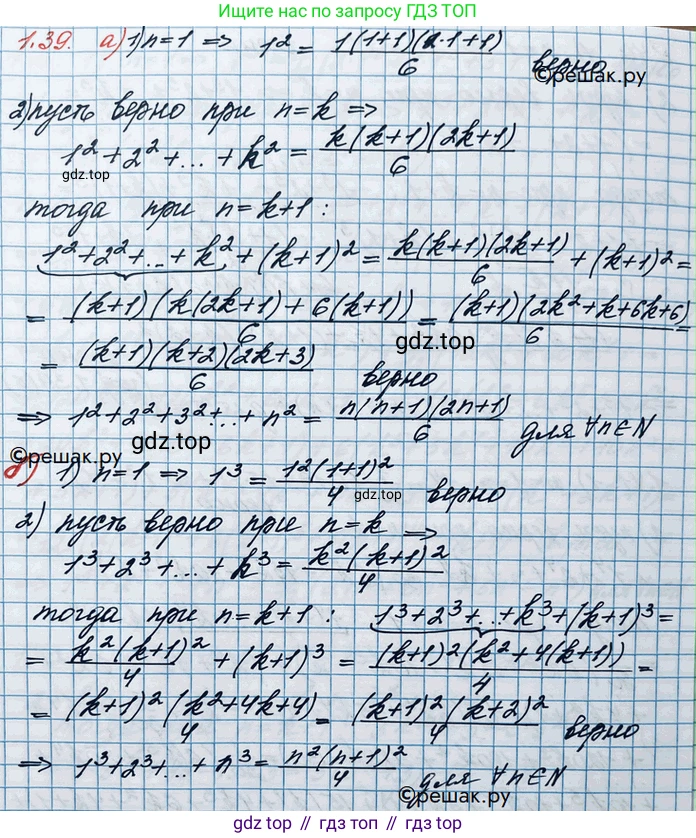 Самые быстрые решения по запросу ГДЗ ТОП
1.39. а) 1) n=1 ⇒ 1² = 1(1+1)(2·1+1)/6 верно
©решак.ру
2) пусть верно при n=k ⇒
1²+2²+...+k² = k(k+1)(2k+1)/6
gdz.top
тогда при n=k+1:
1²+2²+...+k²+(k+1)² = k(k+1)(2k+1)/6 + (k+1)² =
= (k+1)(k(2k+1)+6(k+1))/6 = (k+1)(2k²+k+6k+6)/6 =
gdz.top
= (k+1)(k+2)(2k+3)/6 верно
⇒ 1²+2²+3²+...+n² = n(n+1)(2n+1)/6 для ∀n∈N
gdz.top
©решак.ру
б) 1) n=1 ⇒ 1³ = 1²(1+1)²/4 верно
gdz.top
2) пусть верно при n=k ⇒
1³+2³+...+k³ = k²(k+1)²/4
тогда при n=k+1: 1³+2³+...+k³+(k+1)³ =
= k²(k+1)²/4 + (k+1)³ = (k+1)²(k²+4(k+1))/4 =
= (k+1)²(k²+4k+4)/4 = (k+1)²(k+2)²/4 верно
⇒ 1³+2³+...+n³ = n²(n+1)²/4 для ∀n∈N
©решак.ру
gdz.top // гдз.топ // gdz.top